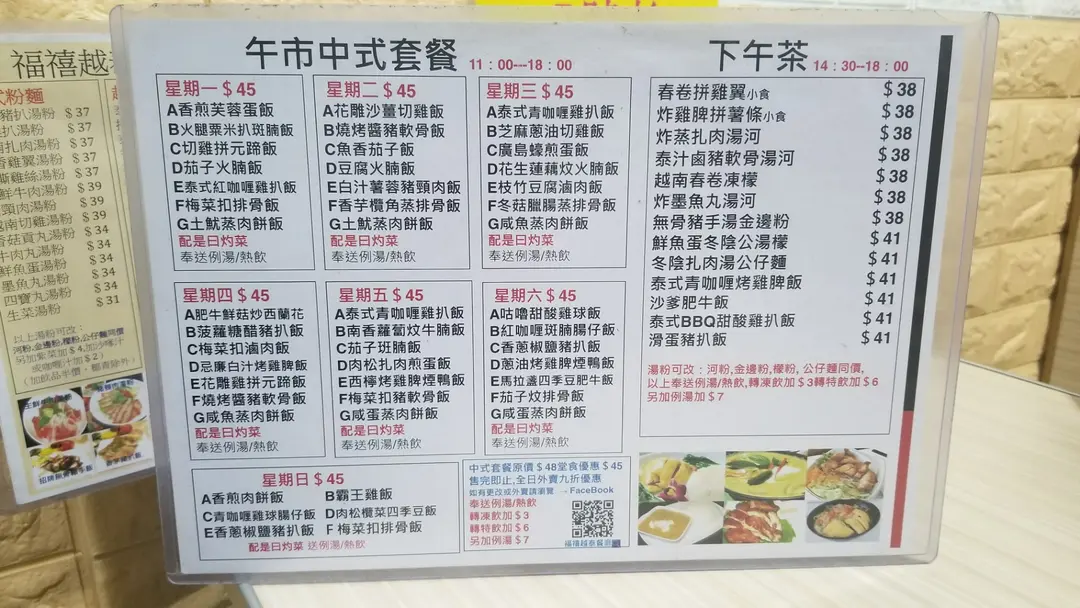 福禧越
式粉麵
豬扒湯粉 $37
扒湯粉 $37
扎肉湯粉 $37
雞翼湯粉 $37
雞絲湯粉 $37
鮮牛肉湯粉 $39
頸肉湯粉 $39
越南切雞湯粉 $34
香菇貢丸湯粉 $34
牛肉丸湯粉 $34
鮮魚蛋湯粉 $34
墨魚丸湯粉 $34
四寶丸湯粉 $31
生菜湯粉
以上湯粉可改:
河粉,金邊粉,檬粉,公仔麵同價
另加紫菜加$4,加沙嗲汁
或咖喱汁加$2)
(加飲品半價,
午市中式套餐 11:00---18:00
星期一 $45
A香煎芙蓉蛋飯
B火腿粟米扒斑腩飯
C切雞拼元蹄飯
D茄子火腩飯
E泰式紅咖喱雞扒飯
F梅菜扣排骨飯
G土魷蒸肉餅飯
配是日灼菜
奉送例湯/熱飲
星期二 $45
A花雕沙薑切雞飯
B燒烤醬豬軟骨飯
C魚香茄子飯
D豆腐火腩飯
E白汁薯蓉豬頸肉飯
F香芋欖角蒸排骨飯
G土魷蒸肉餅飯
配是日灼菜
奉送例湯/熱飲
星期三 $45
A泰式青咖喱雞扒飯
B芝麻蔥油切雞飯
C廣島蠔煎蛋飯
D花生蓮藕炆火腩飯
E枝竹豆腐滷肉飯
F冬菇臘腸蒸排骨飯
G咸魚蒸肉餅飯
配是日灼菜
奉送例湯/熱飲
星期四 $45
A肥牛鮮菇炒西蘭花
B菠蘿糖醋豬扒飯
C梅菜扣滷肉飯
D忌廉白汁烤雞脾飯
E花雕雞拼元蹄飯
F燒烤醬豬軟骨飯
G咸魚蒸肉餅飯
配是日灼菜
奉送例湯/熱飲
星期五 $45
A泰式青咖喱雞扒飯
B南香蘿蔔炆牛腩飯
C茄子班腩飯
D肉松扎肉煎蛋飯
E西檸烤雞脾煙鴨飯
F梅菜扣豬軟骨飯
G咸蛋蒸肉餅飯
配是日灼菜
奉送例湯/熱飲
星期六 $45
A咕嚕甜酸雞球飯
B紅咖喱斑腩腸仔飯
C香蔥椒鹽豬扒飯
D蔥油烤雞脾煙鴨飯
E馬拉盞四季豆肥牛飯
F茄子炆排骨飯
G咸蛋蒸肉餅飯
配是日灼菜
奉送例湯/熱飲
星期日 $45
A香煎肉餅飯 B霸王雞飯
C青咖喱雞球腸仔飯 D肉松欖菜四季豆飯
E香蔥椒鹽豬扒飯 F 梅菜扣排骨飯
配是日灼菜 送例湯/熱飲
中式套餐原價$48堂食優惠$45
售完即止,全日外賣九折優惠
如有更改或外賣請瀏覽 → FaceBook
奉送例湯/熱飲
轉凍飲加$3
轉特飲加$6
另加例湯$7
福禧越泰餐廳
下午茶 14:30--18:00
春卷拼雞翼小食 $38
炸雞脾拼薯條小食 $38
炸蒸扎肉湯河 $38
泰汁鹵豬軟骨湯河 $38
越南春卷凍檬 $38
炸墨魚丸湯河 $38
無骨豬手湯金邊粉 $38
鮮魚蛋冬陰公湯檬 $41
冬陰扎肉湯公仔麵 $41
泰式青咖喱烤雞脾飯 $41
沙爹肥牛飯 $41
泰式BBQ甜酸雞扒飯 $41
滑蛋豬扒飯 $41
湯粉可改:河粉,金邊粉,檬粉,公仔麵同價,
以上奉送例湯/熱飲,轉凍飲加$3轉特飲加$6
另加例湯加$7